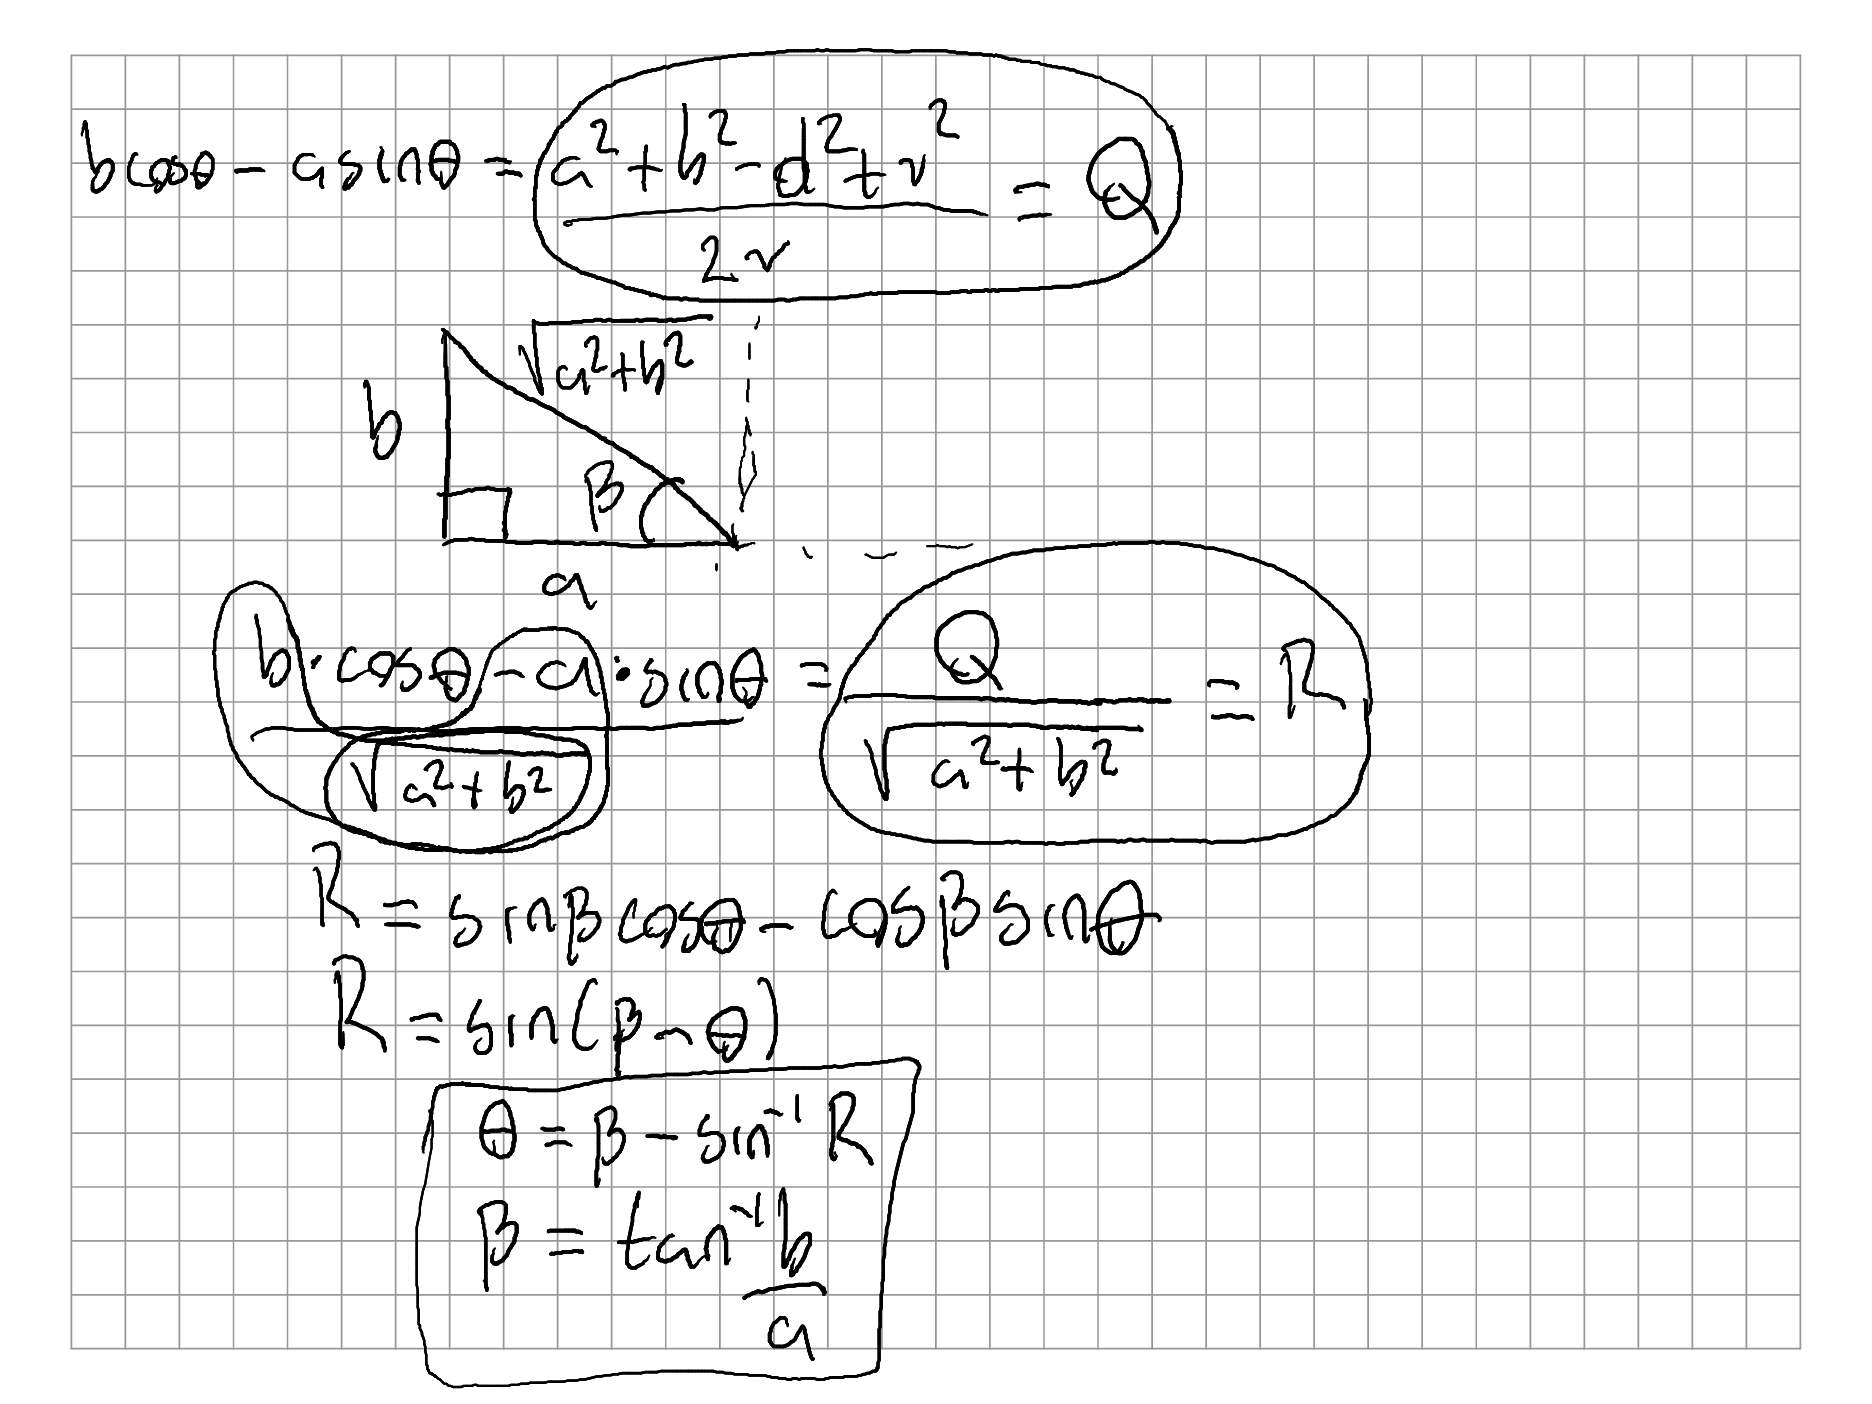 bcosθ - asinθ = (a² + b² - d² + r²)/(2r) = Q
√(a²+b²)
b
β
a
(b·cosθ - a·sinθ)/√(a²+b²) = Q/√(a²+b²) = R
R = sinβcosθ - cosβsinθ
R = sin(β - θ)
θ = β - sin⁻¹R
β = tan⁻¹ b/a